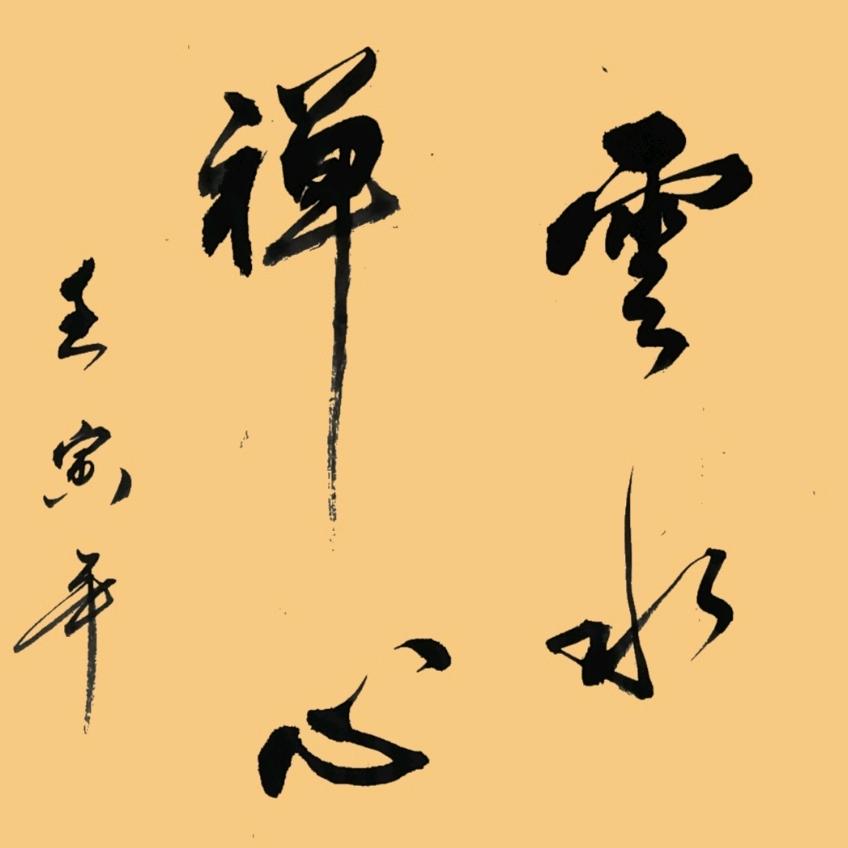 雲水
禪心
壬寅年